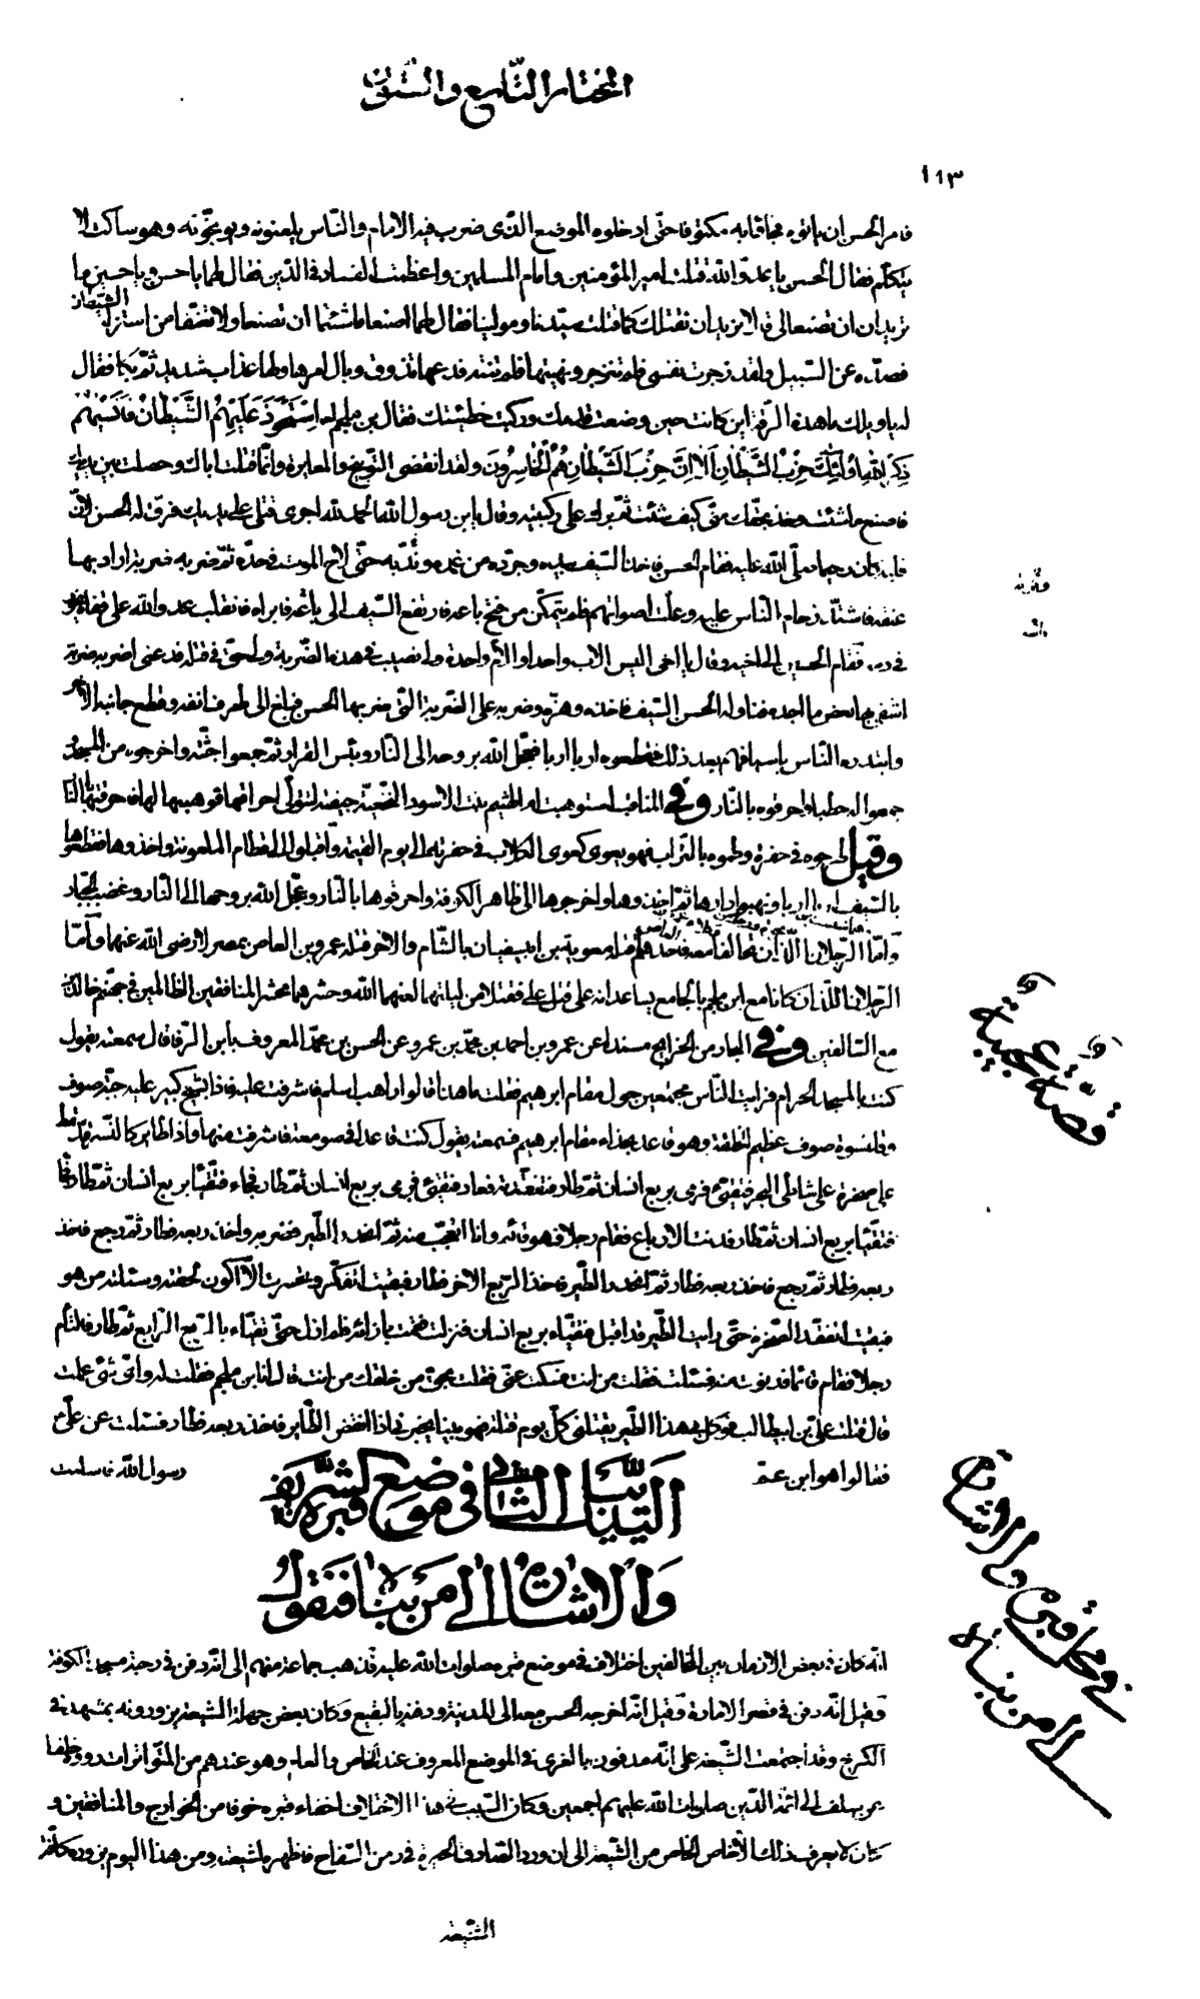 المختار التاسع والستون
١١٣
فامر الحسن ان ياتوه به مكتوفا حتى ادخلوه الموضع الذى ضرب فيه الامام والناس يلعنونه ويوبخونه وهو ساكت لا
يتكلم فقال الحسن يا عدو الله قتلت امير المؤمنين وامام المسلمين واعظمت الفساد فى الدين فقال لهما يا حسن ويا حسين ما
تريدان ان تصنعا بى قالا نريد ان نقتلك كما قتلت سيدنا ومولينا فقال لهما اصنعا ما شئتما ان تصنعا ولا تعنفا من استزله الشيطان
فصده عن السبيل ولقد زجرت نفسى فلم تنزجر ونهيتها فلم تنته فدعها تذوق وبال امرها ولها عذاب شديد ثم بكا فقال
له يا ويلك ما هذه الرقة اين كانت حين وضعت قدمك وركبت خطيئتك فقال ابن ملجم له اِسْتَحْوَذَ عَلَيْهِمُ الشَّيْطَانُ فَاَنْسٰيهُمْ
ذِكْرَ اللّٰهِ اُولٰئِكَ حِزْبُ الشَّيْطَانِ اَلَا اِنَّ حِزْبَ الشَّيْطَانِ هُمُ الْخَاسِرُونَ ولقد انقضى التوبيخ والمعايرة وانما قتلت اباك وحصلت بين يديك
فاصنع ما شئت وخذ بحقك منى كيف شئت ثم برك على ركبتيه وقال يابن رسول الله الحمد لله اجرى قتلى على يديك فرق له الحسن لان
قلبه كان رحيما صلى الله عليه فقام الحسن فاخذ السيف بيده وجرده من غمده وندبه حتى لاح الموت فى حده ثم ضربه ضربة اراد بها
عنقه فاشتد زحام الناس عليه وعلت اصواتهم فلم يتمكن من فتح باعه فارتفع السيف الى باعه فابراه فانقلب عدو الله على قفاه يخور
فى دمه فقام الحسين الى اخيه وقال يا اخى اليس الاب واحدا والام واحدة ولى نصيب فى هذه الضربة ولى حق فى قتله فدعنى اضربه ضربة
اشفى بها بعض ما اجده فناوله الحسن السيف فاخذه وهزه وضربه على الضربة التى ضربها الحسن فبلغ الى طرف انفه وقطع جانبه الاخر
وابتدره الناس باسيافهم بعد ذلك فقطعوه اربا اربا فعجل الله بروحه الى النار وبئس القرار ثم جمعوا جثته واخرجوه من المسجد
جمعوا له حطبا واحرقوه بالنار وفى المناقب استوهبت ام الهيثم بنت الاسود النخعية جيفته لتتولى احراقها فوهبها لها فاحرقتها بالنار
وقيل طرحوه فى حفرة وطموه بالتراب فهو يعوى كعوى الكلاب فى حفرته الى يوم القيمة واقبلوا الى قطام الملعونة واخذوها فقطعوها
بالسيف اربا اربا ونهبوا دارها ثم اخذوها واخرجوها الى ظاهر الكوفة واحرقوها بالنار وعجل الله بروحها الى النار وغضب الجبار
واما الرجلان اللذان تحالفا معه فاحدهما قتله معوية بن ابيسفيان بالشام والاخر قتله عمرو بن العاص بمصر لا رضى الله عنهما واما
الرجلان اللذان كانا مع ابن ملجم بالجامع يساعدانه على قتل على فقتلا من ليلتهما لعنهما الله وحشرهما محشر المنافقين الظالمين فى جهنم خالدين
مع السالفين وفى البحار من الخرايج مسندا عن عمرو بن احمد بن محمد بن عمرو عن الحسن بن محمد المعروف بابن الرفا قال سمعته يقول
كنت بالمسجد الحرام فرايت الناس مجتمعين حول مقام ابرهيم فقلت ما هذا قالوا راهب اسلم فاشرفت عليه فاذا بشيخ كبير عليه جبة صوف
وقلنسوة صوف عظيم الخلقة وهو قاعد بحذاء مقام ابرهيم فسمعته يقول كنت قاعدا فى صومعة فاشرفت منها واذا طاير كالنسر قد سقط
على صخرة على شاطى البحر فتقيئ فرمى بربع انسان ثم طار فتفقدته فعاد فتقيئ فرمى بربع انسان ثم طار فجاء فتقيأ بربع انسان ثم طار فجا
فتقيأ بربع انسان ثم طار فدنت الارباع فقام رجلا فهو قائم وانا اتعجب منه ثم انحدر الطير فضربه واخذ ربعه فطار ثم رجع فاخذ
ربعه فطار ثم رجع فاخذ ربعه فطار ثم انحدر الطير فاخذ الربع الاخر فطار فبقيت اتفكر وتحسرت الا اكون لحقته وسئلته من هو
فبقيت اتفقد الصخرة حتى رايت الطير قد اقبل فتقياء بربع انسان فنزلت فقمت بازائه فلم ازل حتى تقياء بالربع الرابع ثم طار فالتام
رجلا فقام قائما فدنوت منه فسئلته فقلت من انت فسكت عنى فقلت بحق من خلقك من انت قال انا ابن ملجم فقلت له واى شئ عملت
قال قتلت على بن ابيطالب فوكل بى هذا الطير يقتلنى كل يوم قتلة فهو بينا يخبرنى اذ انقض الطاير فاخذ ربعه فطار فسئلت عن على
فقالوا هو ابن عم رسول الله فاسلمت
التذنيب الثانى فى موضع قبره الشريف
والاشارة الى من بناه فنقول
انه كان فى بعض الازمان بين المخالفين اختلاف فى موضع قبره صلوات الله عليه فذهب جماعة منهم الى انه دفن فى رحبة مسجد الكوفة
وقيل انه دفن فى قصر الامارة وقيل انه اخرجه الحسن معه الى المدينة ودفنه بالبقيع وكان بعض جهلة الشيعة يزورونه بمشهد فى
الكرخ وقد اجتمعت الشيعة على انه مدفون بالغرى فى الموضع المعروف عند الخاص والعام وهو عندهم من المتواترات رووه خلفا
عن سلف الى ائمة الدين صلوات الله عليهم اجمعين وكان السبب فى هذا الاختلاف اخفاء قبره خوفا من الخوارج والمنافقين و
كان لا يعرف ذلك الا خاص الخاص من الشيعة الى ان ورد الصادق الحيرة فى زمن السفاح فاظهره لشيعته ومن هذا اليوم يزوره كافة
الشيعة
قصة عجيبة
فى محل قبره والاشارة
الى من بناه